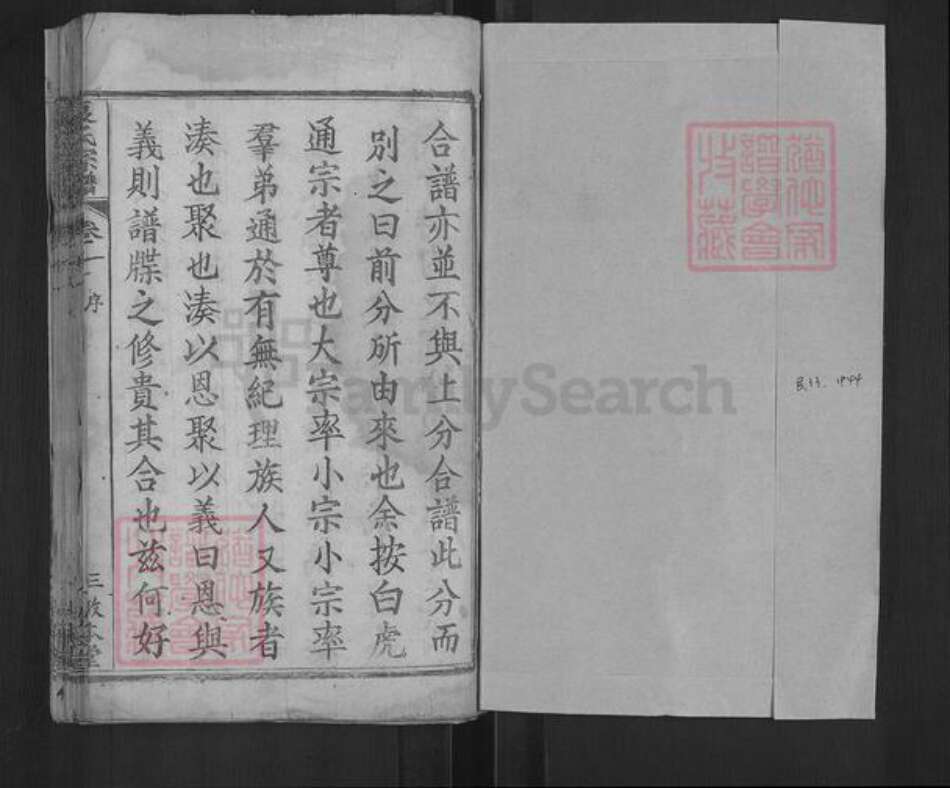 民33. 1944
合譜亦並不與上分合譜此分而
別之曰前分所由來也余按白虎
通宗者尊也大宗率小宗小宗率
羣弟通於有無紀理族人又族者
湊也聚也湊以恩聚以義曰恩與
義則譜牒之修貴其合也茲何好
氏宗譜 卷一 序 三 堂
FamilySearch